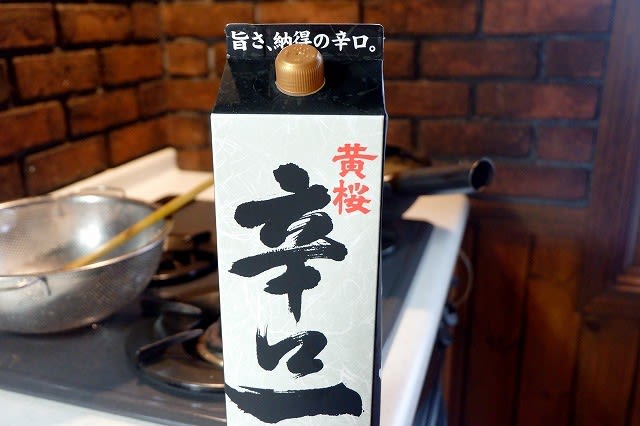 旨さ、納得の辛口。
黄桜
辛口一